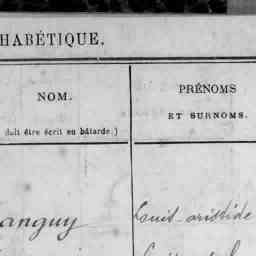 HABÉTIQUE.
NOM.
PRÉNOMS
ET SURNOMS.
doit être écrit en bâtarde.)
anguy
Louis aristide